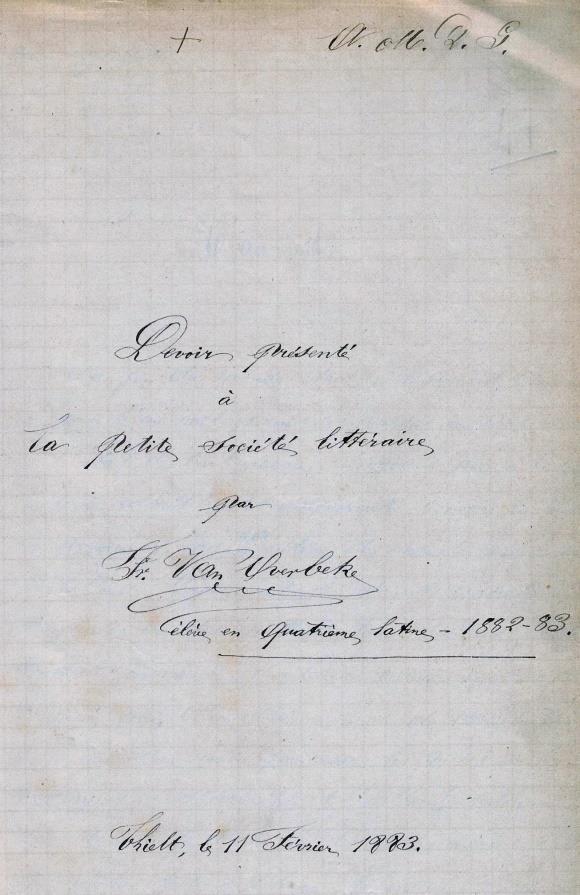 + A. M. D. G.
Devoir présenté
à
la petite société littéraire
par
Fr. Van Overbeke
élève en Quatrième latine – 1882-83.
Thielt, le 11 Février 1883.